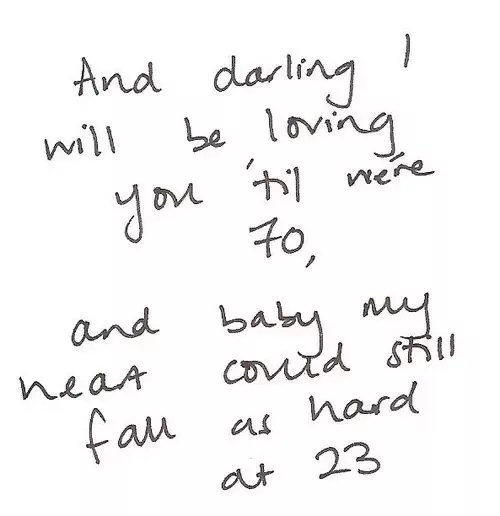 And darling I
will be loving
you 'til we're
70,
and baby my
heart could still
fall as hard
at 23